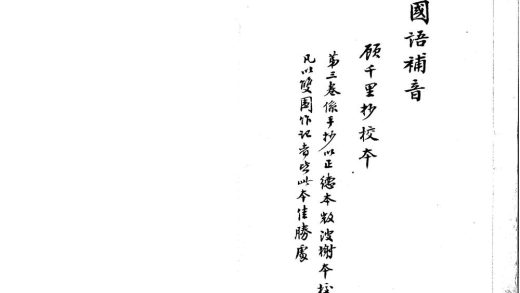 國語補音
顾千里抄校本
第三卷係手抄以正德本微波榭本校
凡以雙圈作記者皆此本佳勝處